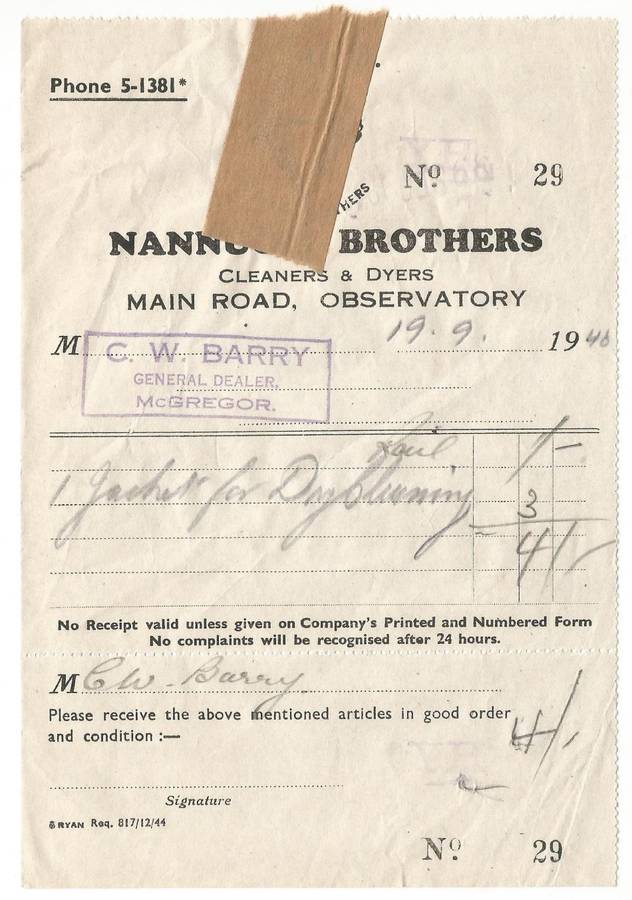 Phone 5-1381*
THERS
Nº 29
BROTHERS
CLEANERS & DYERS
MAIN ROAD, OBSERVATORY
M 19.9. 1946
C. W. BARRY
GENERAL DEALER,
McGREGOR.
Rail 1/-
1 Jacket for Drycleaning 3
4/-
No Receipt valid unless given on Company's Printed and Numbered Form
No complaints will be recognised after 24 hours.
M C W. Barry
Please receive the above mentioned articles in good order
and condition :— 4/-
Signature
RYAN Req. 817/12/44
Nº 29